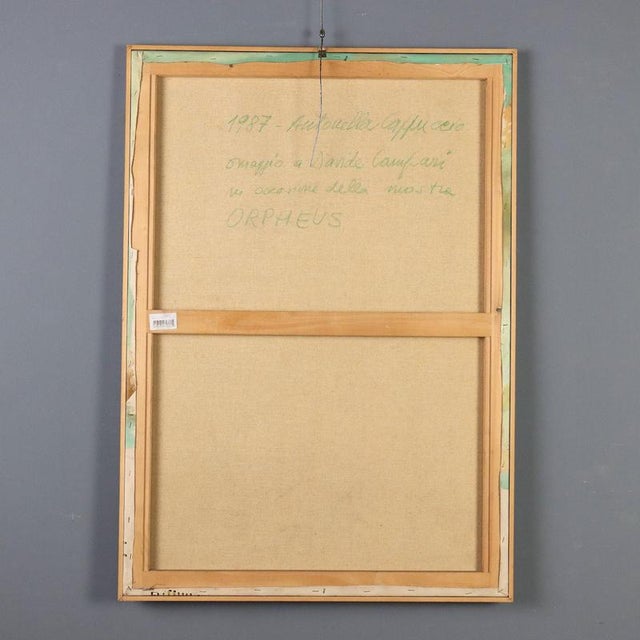 1987 - Antonella Cappuccio
omaggio a Davide Campari
in occasione della mostra
ORPHEUS